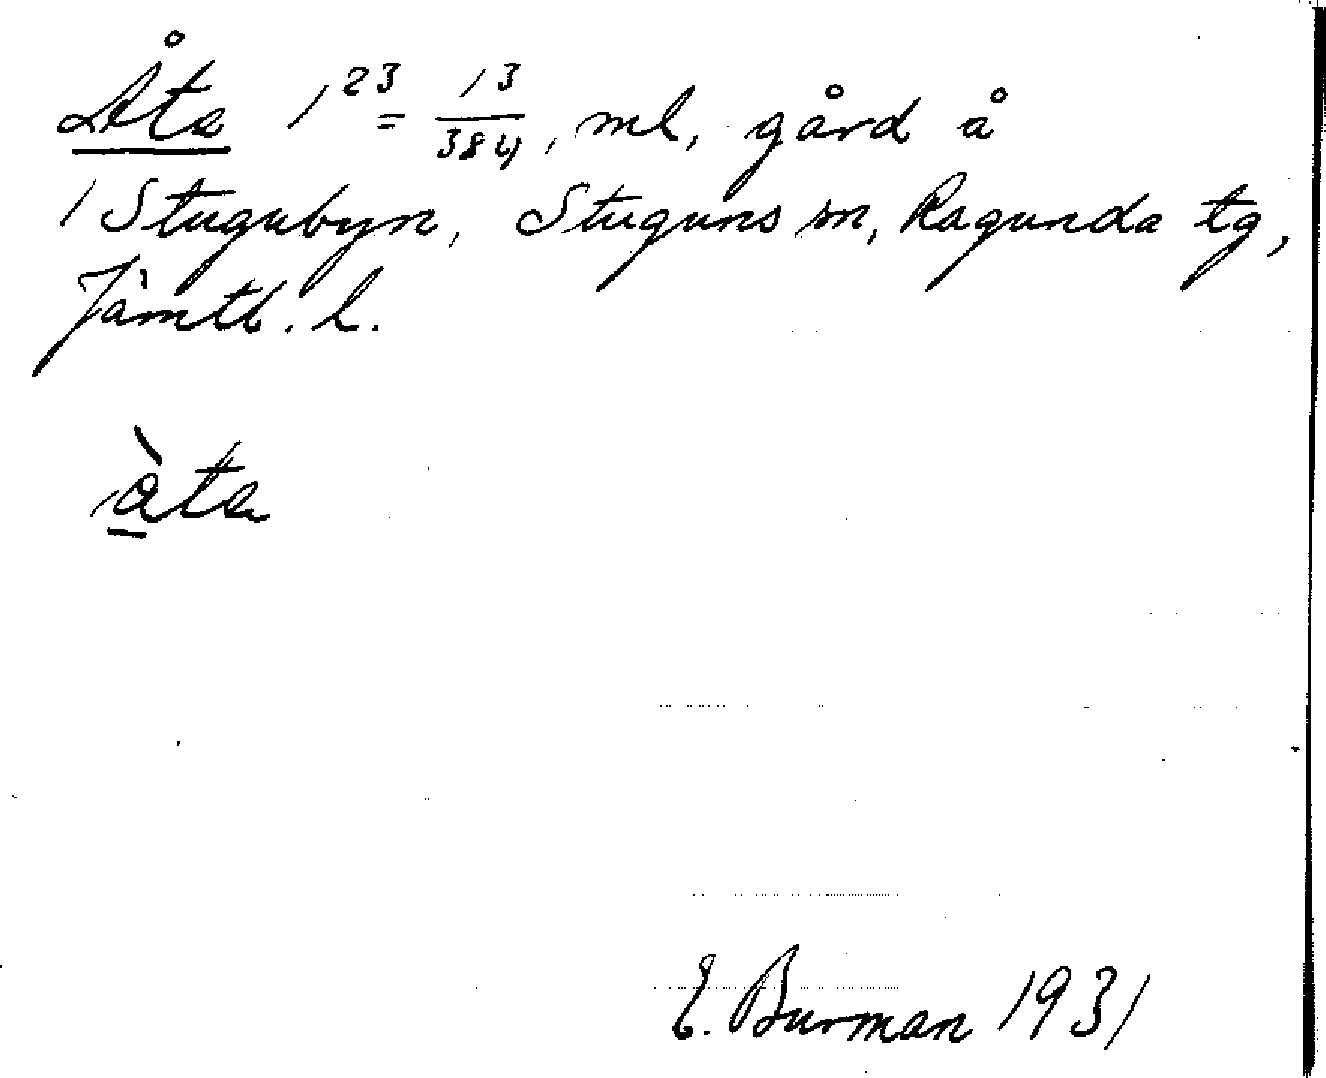 Åta 1²³ = 13/384, ml, gård å
1 Stugubyn, Stuguns sn, Ragunda tg,
Jämtl. l.
àta
E. Burman 1931